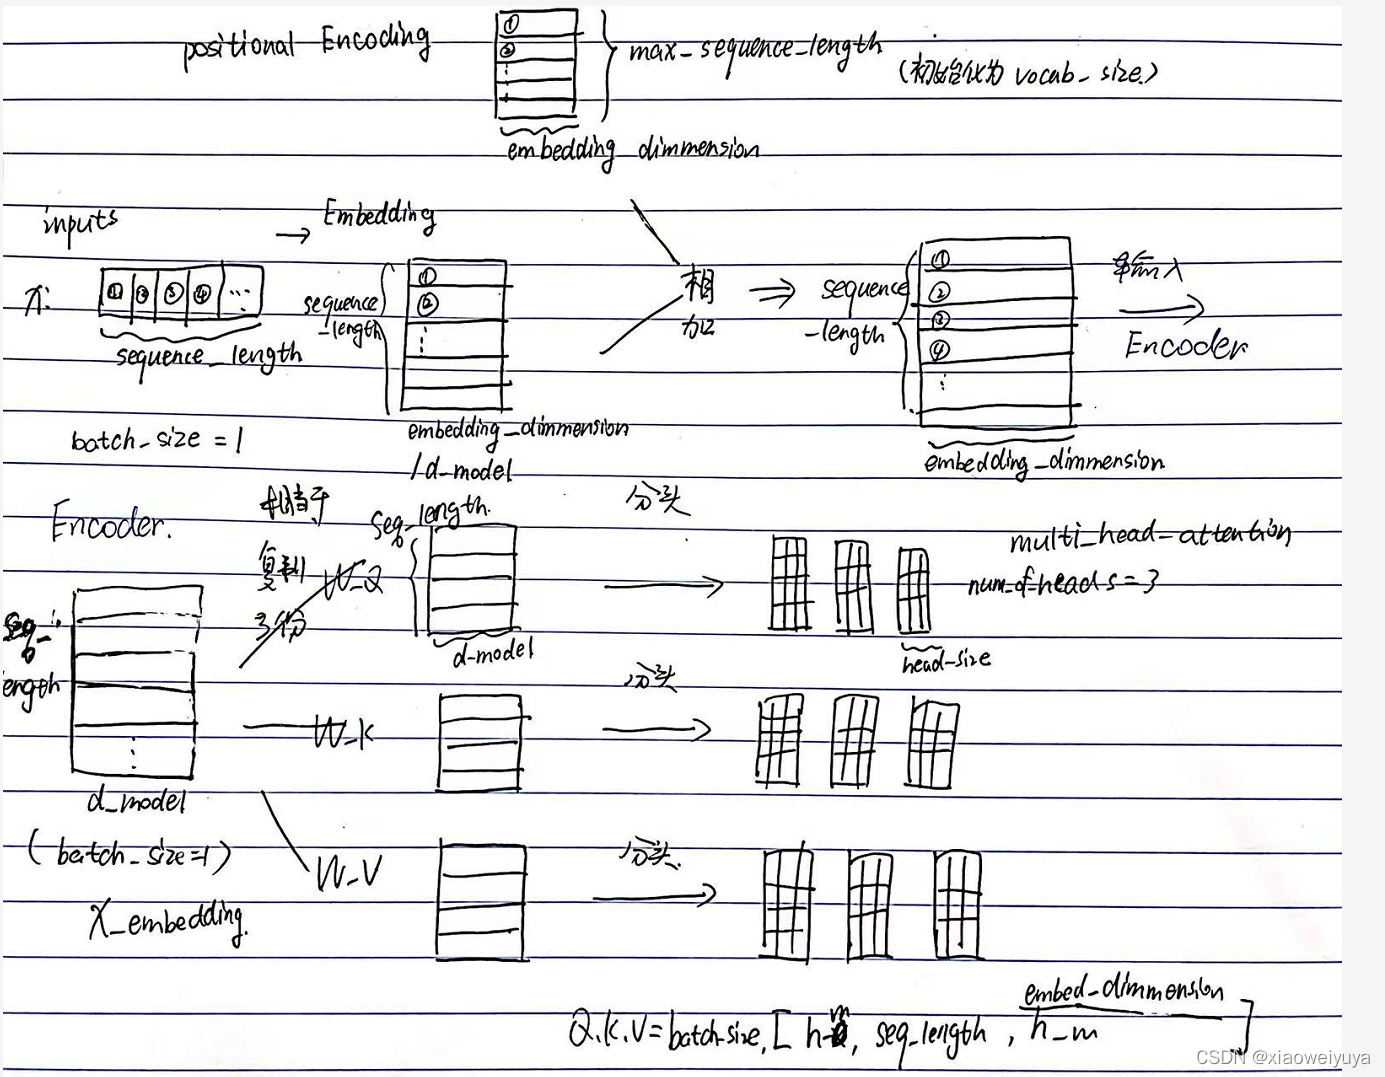 positional Encoding
①
②
max_sequence_length
(初始化为 vocab_size.)
embedding dimmension
inputs
→ Embedding
x:
① ② ③ ④ ...
sequence_length
batch_size = 1
sequence
_length
①
②
embedding_dimmension
/d_model
相
加
sequence
-length
①
②
③
④
embedding_dimmension
输入
Encoder
Encoder.
相当于
复制
3份
seq-
length
d_model
(batch_size=1)
X_embedding.
W_Q
seq_length.
d-model
分头
multi_head_attention
num_of_heads=3
head-size
W_K
分头
W_V
分头
Q.K.V=batch-size, [ h_m, seq_length, embed_dimmension
h_m ]
CSDN @xiaoweiyuya